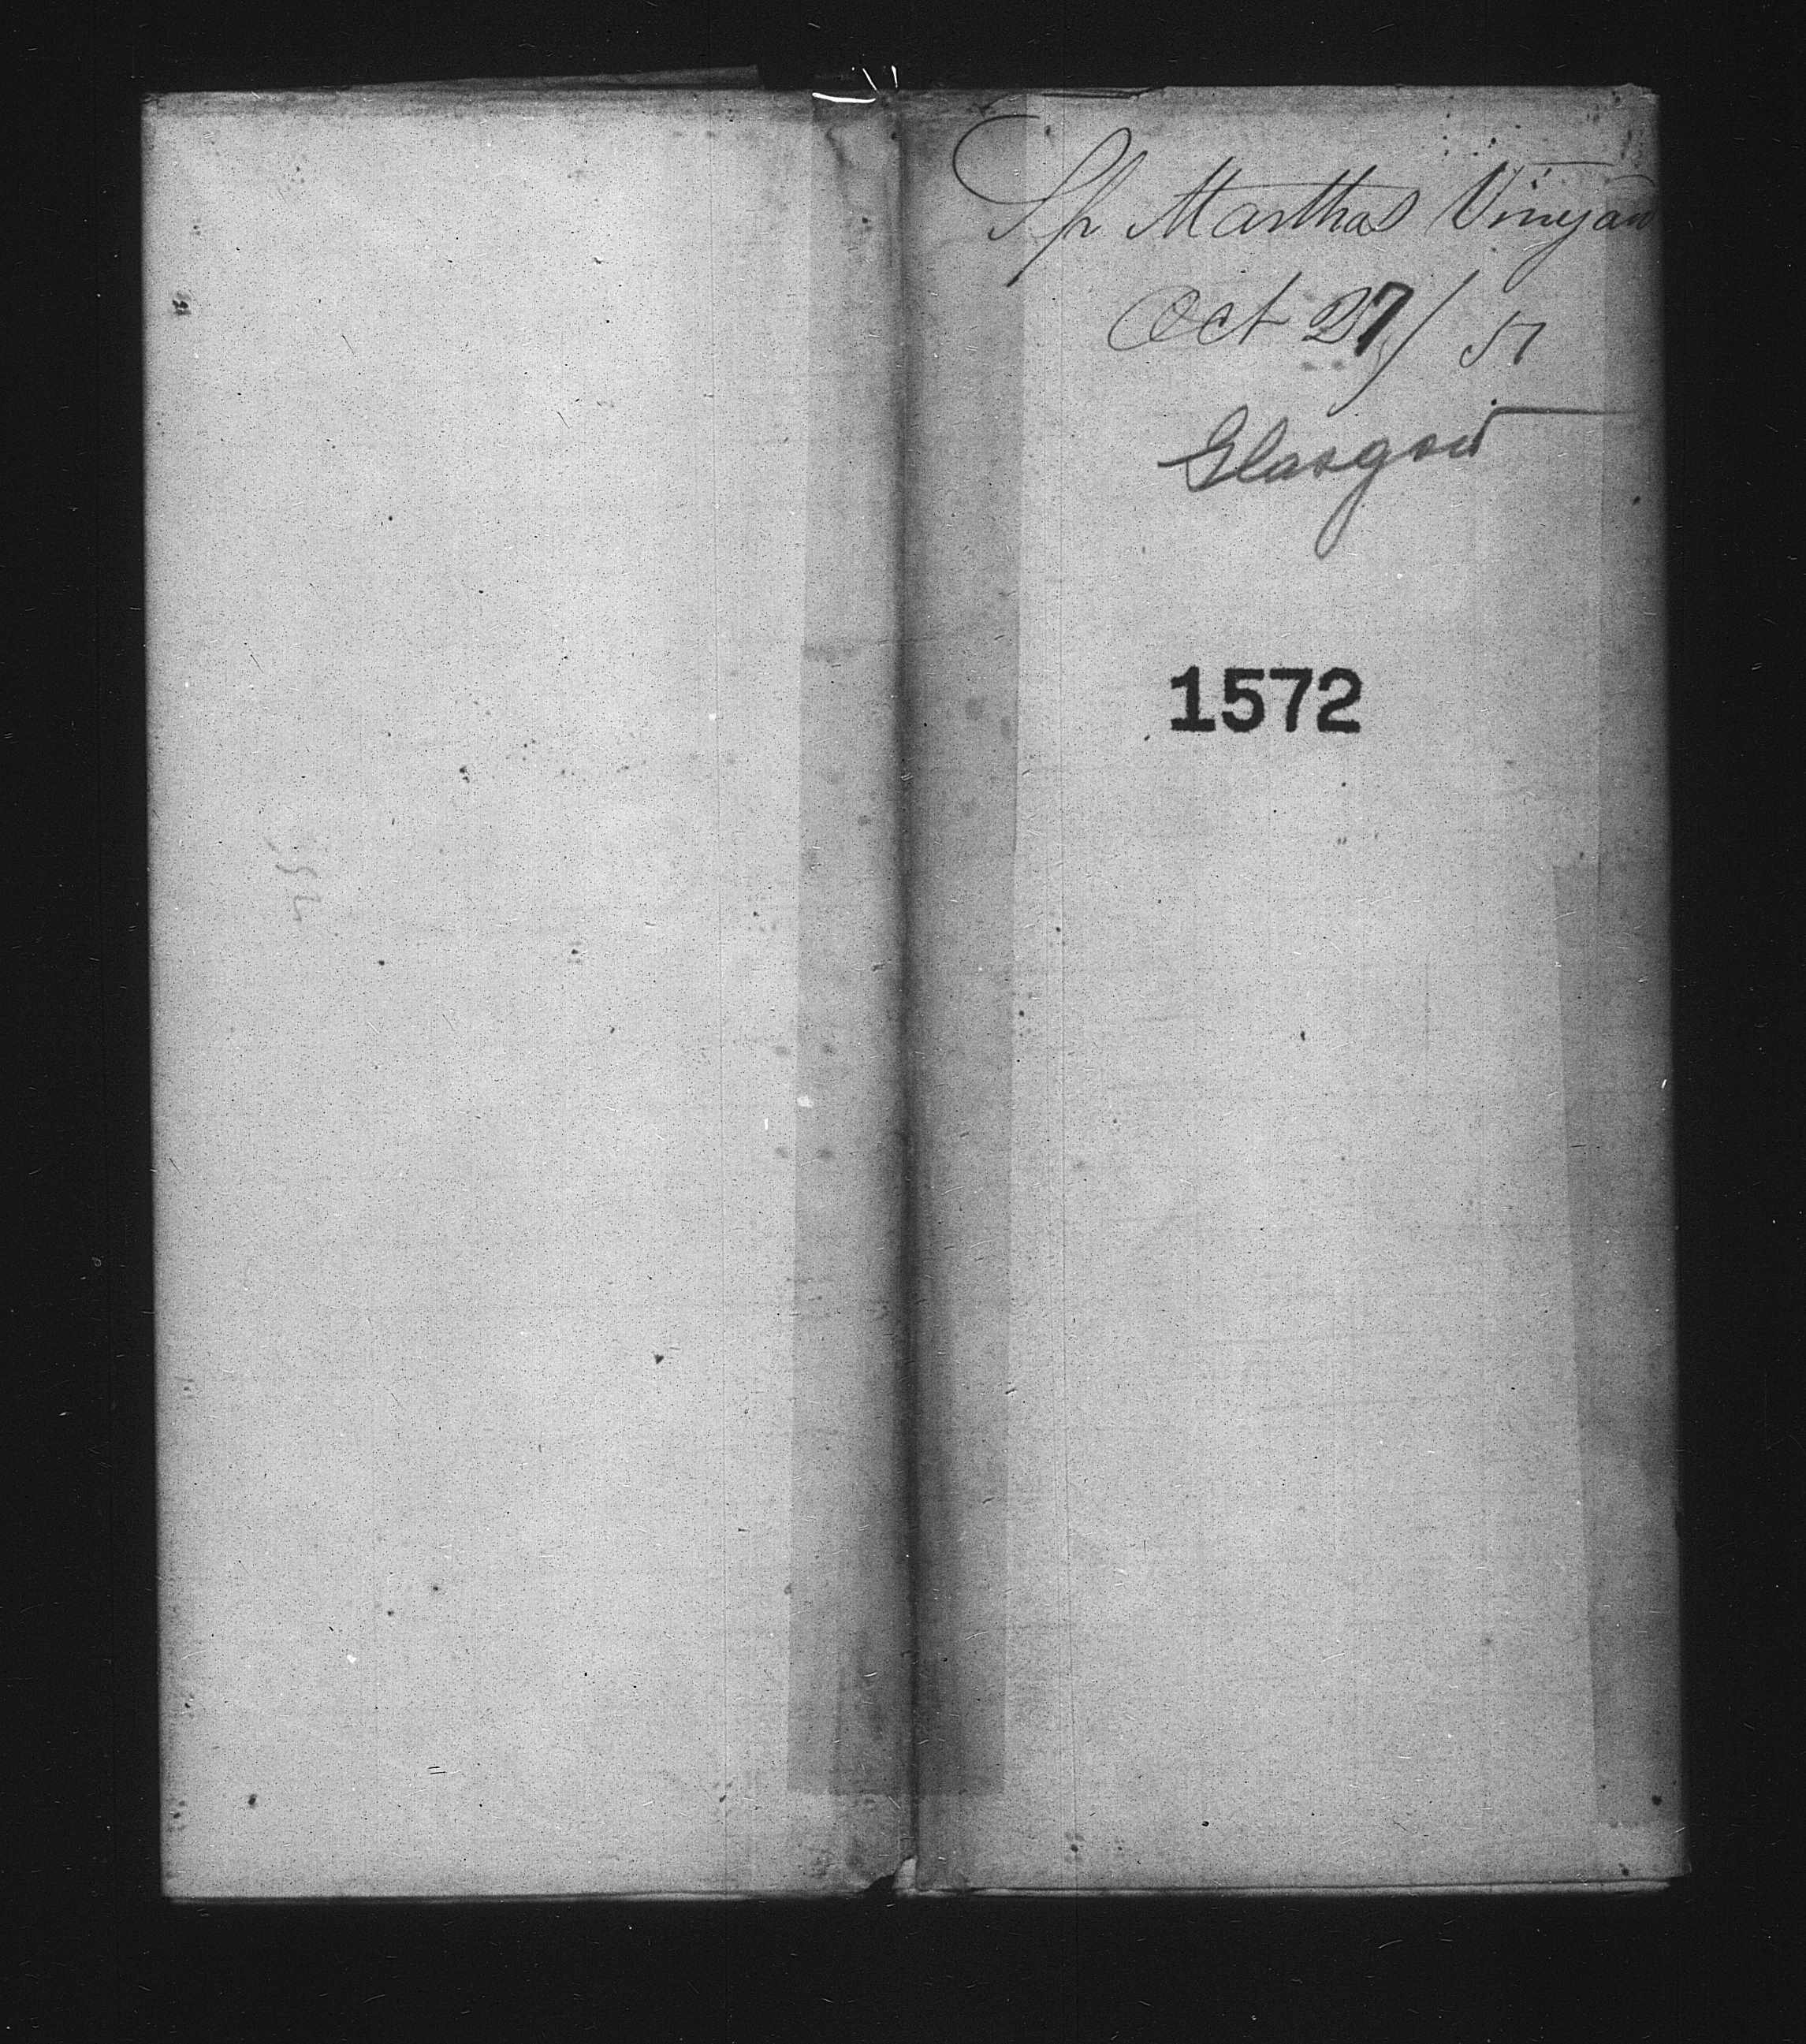 Sp Marthas Vineyard
Oct 27/57
Glasgow
1572